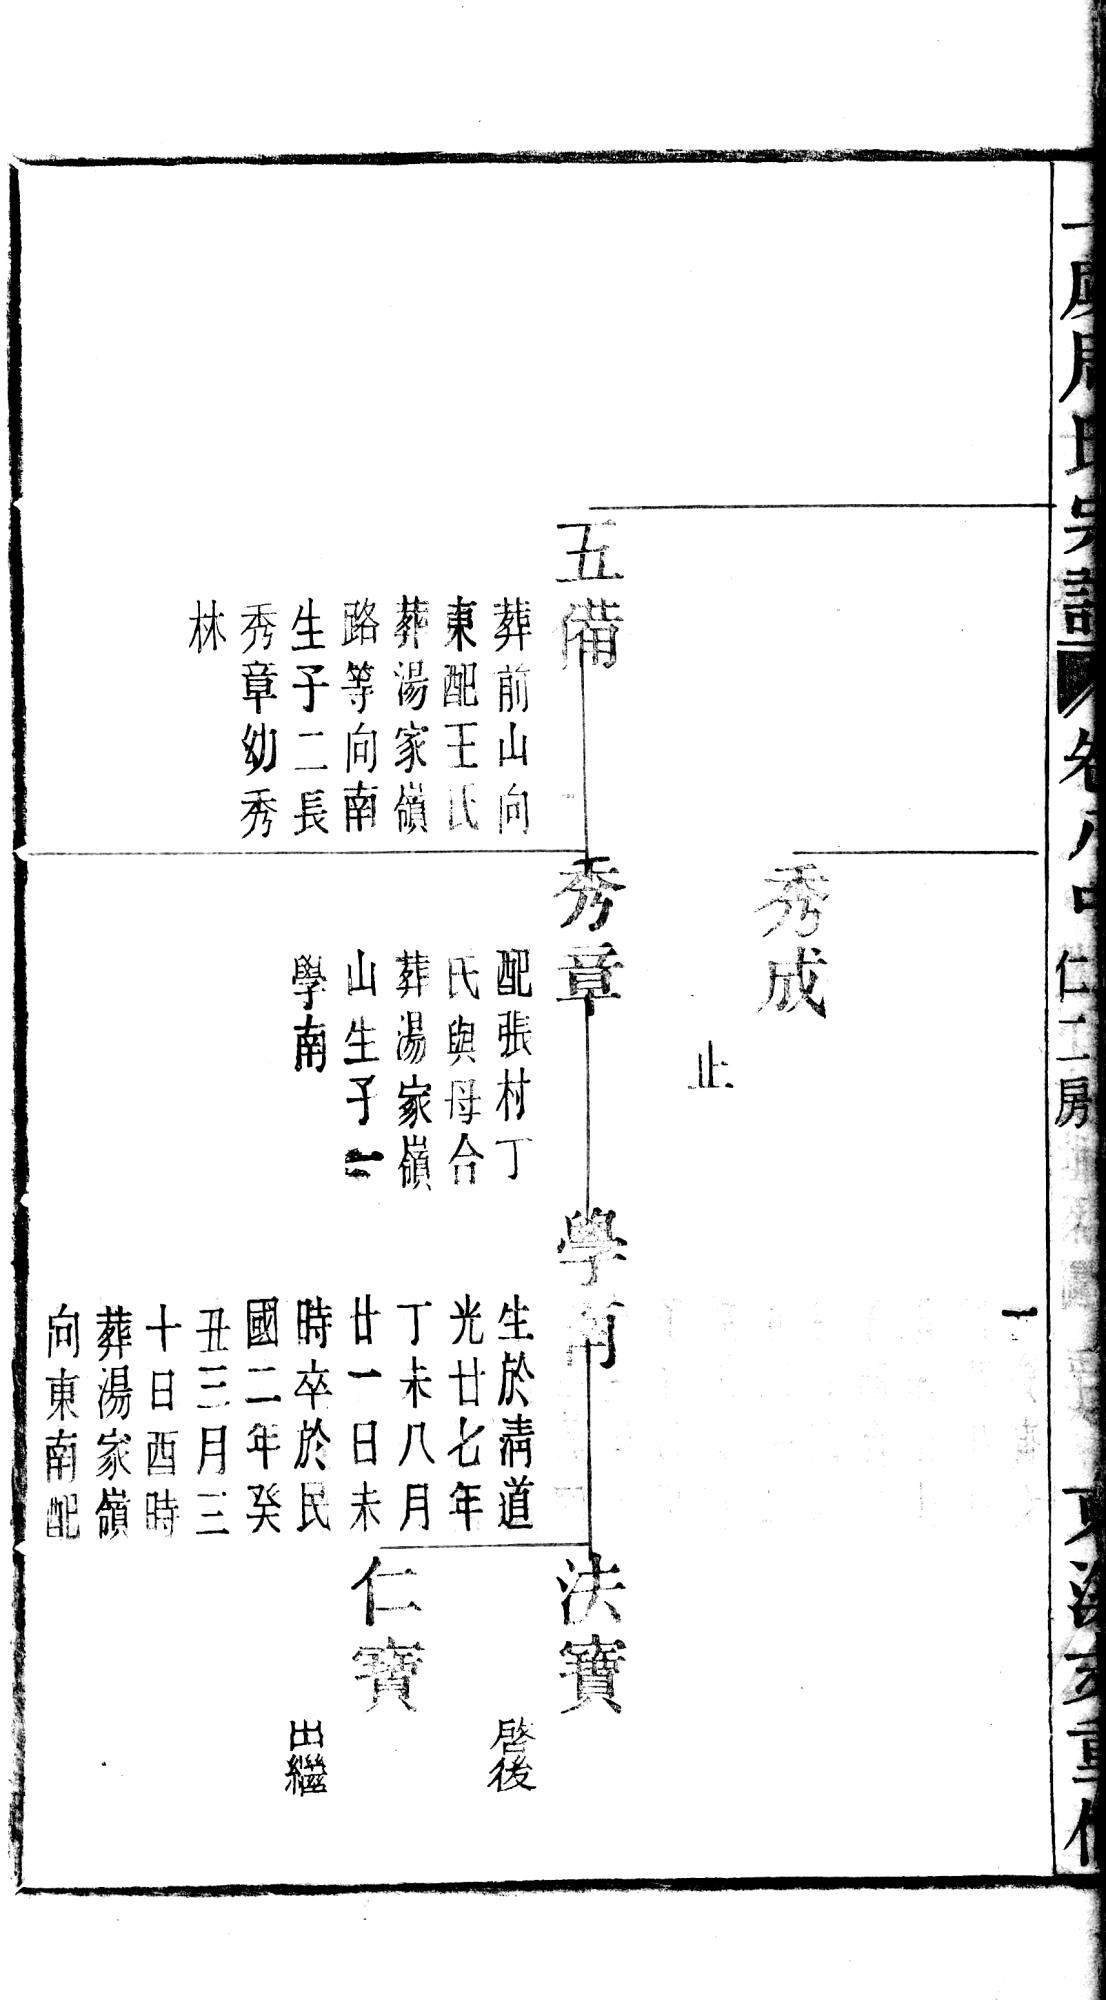 周氏宗譜
卷八中
仁二房
一
重修
秀成
止
五備
葬前山向
東配王氏
葬湯家嶺
路等向南
生子二長
秀章幼秀
林
秀章
配張村丁
氏與母合
葬湯家嶺
山生子一
學南
學南
生於清道
光廿七年
丁未八月
廿一日未
時卒於民
國二年癸
丑三月三
十日酉時
葬湯家嶺
向東南配
法寶
啓後
仁寶
出繼